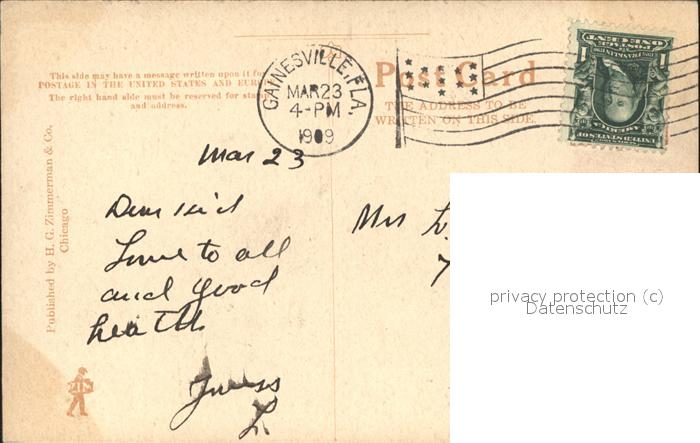 This side may have a message written upon it for
POSTAGE IN THE UNITED STATES AND EUR
The right hand side must be reserved for sta
and address.
GAINESVILLE, FLA.
MAR 23
4-PM
1909
Post Card
THE ADDRESS TO BE
WRITTEN ON THIS SIDE.
POSTAGE
ONE CENT
1 1
UNITED STATES OF AMERICA
Published by H. G. Zimmerman & Co.
Chicago
Mar 23
Dear
Love to all
and good
health
L.
Mrs L
privacy protection (c)
Datenschutz